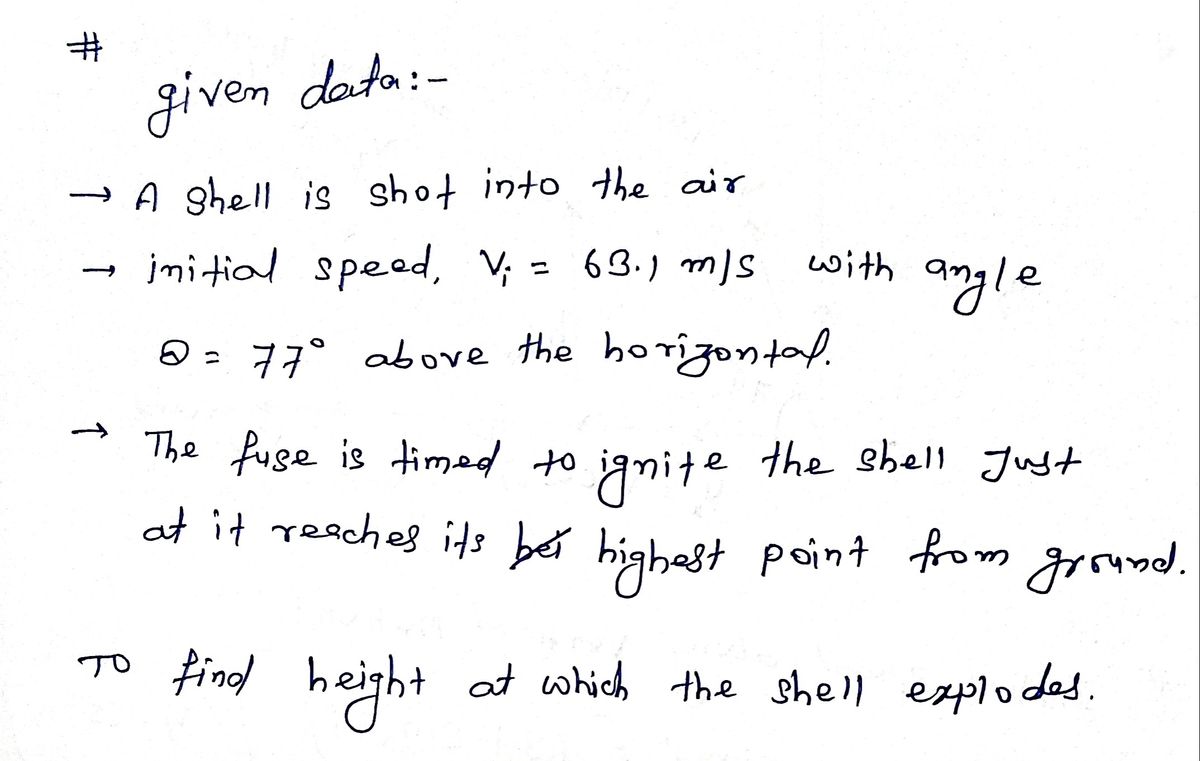 #
given data:-
→ A shell is shot into the air
→ initial speed, Vi = 63.1 m/s with angle
θ = 77° above the horizontal.
→ The fuse is timed to ignite the shell Just
at it reaches its highest point from ground.
TO find height at which the shell explodes.